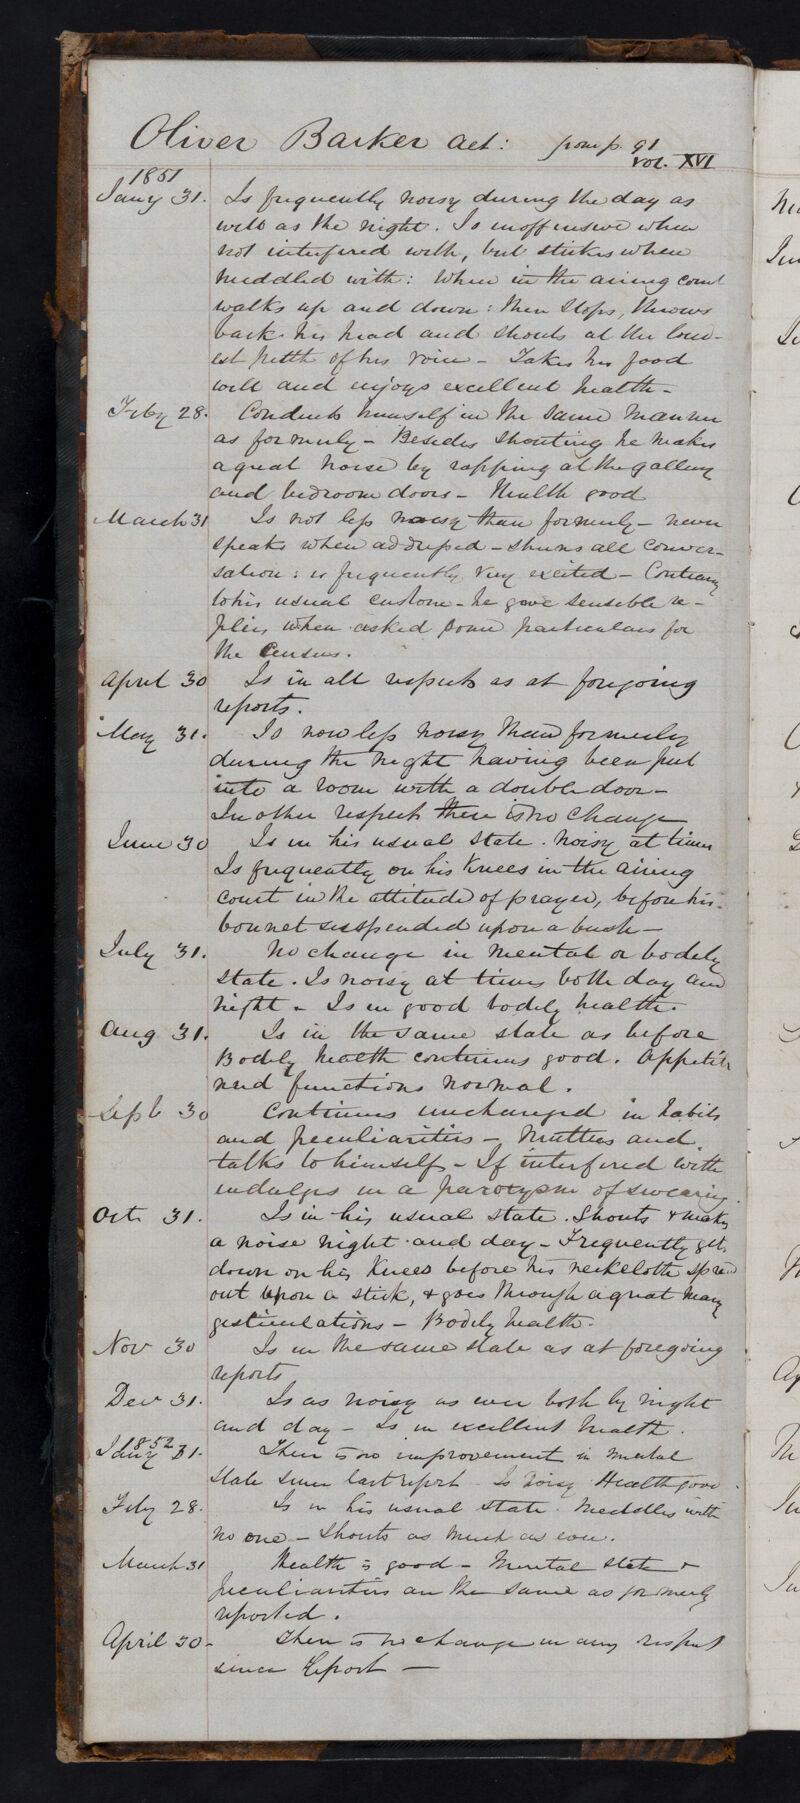 Oliver Barker aet: from p. 91
Vol. XVI
1851
Jany 31. Is frequently noisy during the day as
well as the night. Is inoffensive when
not interfered with, but strikes when
meddled with: When in the airing court
walks up and down: then stops, throws
back his head and shouts at the loud-
est pitch of his voice - Takes his food
well and enjoys excellent health -
Feby 28. Conducts himself in the same manner
as formerly - Besides shouting he makes
a great noise by rapping at the gallery
and bedroom doors - Health good
March 31 Is not less noisy than formerly - never
speaks when addressed - shuns all conver-
sation: is frequently very excited - Contrary
to his usual custom - he gave sensible re-
plies when asked some particulars for
the Census.
April 30 Is in all respects as at foregoing
reports.
May 31. Is now less noisy than formerly
during the night having been put
into a room with a double door -
In other respects there is no change
June 30 Is in his usual state. Noisy at times
Is frequently on his knees in the airing
court in the attitude of prayer, before his
bonnet suspended upon a bush -
July 31. No change in mental or bodily
state. Is noisy at times both day and
night - Is in good bodily health.
Aug 31. Is in the same state as before
Bodily health continues good. Appetite
and functions normal.
Septr 30 Continues unchanged in habits
and peculiarities - Mutters and
talks to himself - If interfered with
indulges in a paroxysm of swearing.
Oct 31. Is in his usual state. Shouts & makes
a noise night and day - Frequently gets
down on his knees before his neckcloth spread
out upon a stick, & goes through a great many
gesticulations - Bodily health.
Nov 30 Is in the same state as at foregoing
reports
Dec 31. Is as noisy as ever both by night
and day - Is in excellent health.
1852
Jany 31. There is no improvement in mental
state since last report - Is noisy Health good.
Feby 28. Is in his usual state. Meddles with
no one - Shouts as much as ever.
March 31 Health is good - Mental state &
peculiarities are the same as formerly
reported.
April 30 - There is no change in any respect
since Report -